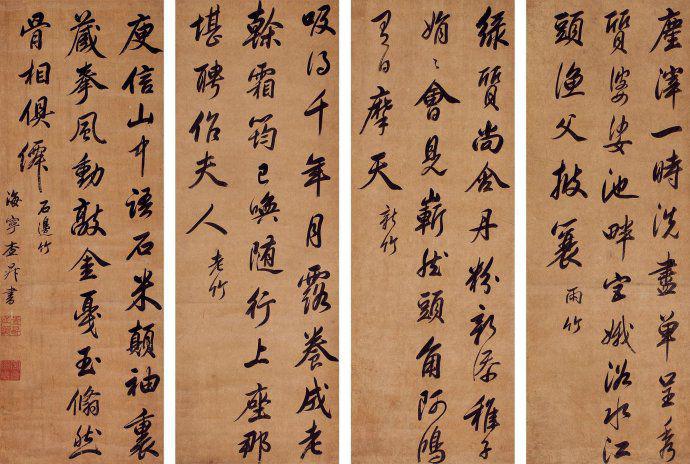 塵滓一時洗盡單呈秀
質婆娑池畔宓娥浴水江
頭漁父披蓑 雨竹
綠質尚含丹粉新添稚子
娟〻會見嶄然頭角阿鴻
有日摩天 新竹
吸得千年月露養成老
幹霜筠已喚隨行上座那
堪聘作夫人 老竹
庾信山中語石米顛袖裏
藏拳風動敲金戛玉翛然
骨相俱 石邊竹
海寧查昇書